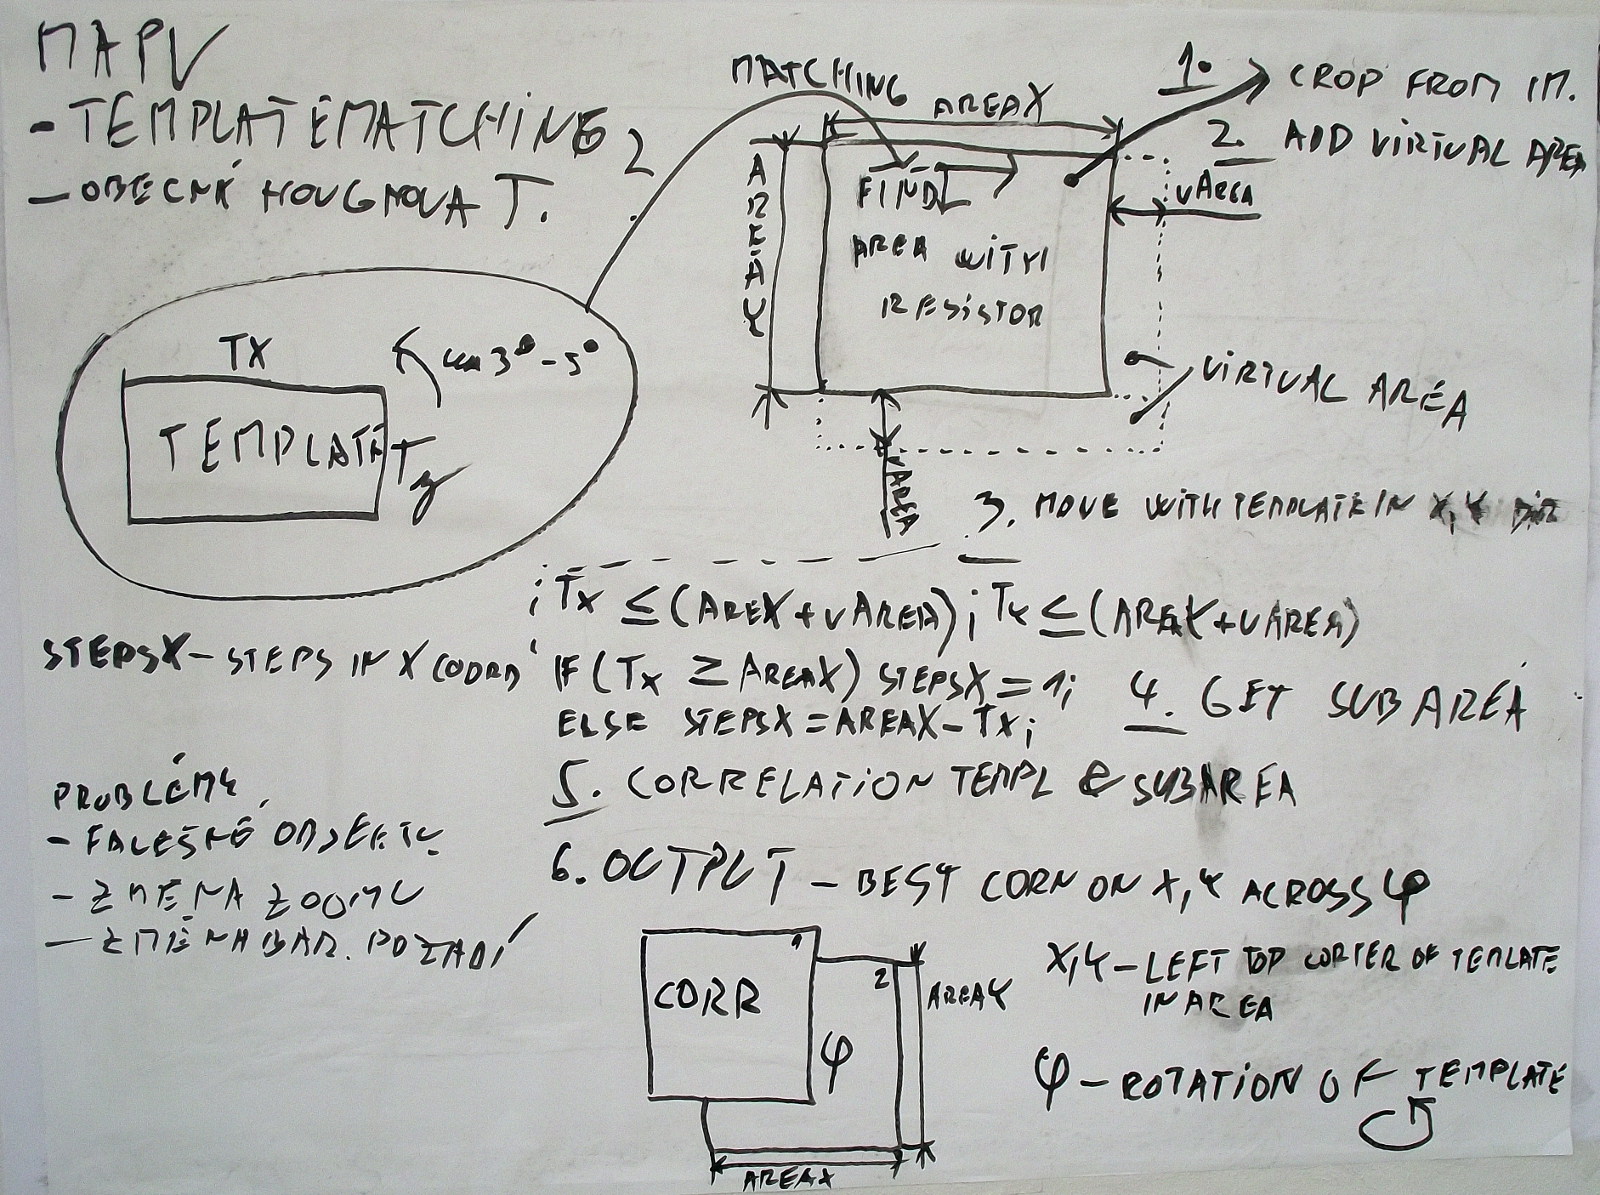 MAPV
- TEMPLATE MATCHING
- OBECNÁ HOUGHOVA T.
2.
MATCHING
AREAX
AREAY
FIND
AREA WITH
RESISTOR
1. CROP FROM IM.
2. ADD VIRTUAL AREA
VAREA
VIRTUAL AREA
VAREA
TX
3° - 5°
TEMPLATE
Ty
3. MOVE WITH TEMPLATE IN X,Y DIR
; Tx ≤ (AREX + VAREA); Ty ≤ (AREAY + VAREA)
STEPSX - STEPS IN X COORD
IF (Tx ≥ AREAX) STEPSX = 1;
ELSE STEPSX = AREAX - Tx;
4. GET SUBAREA
5. CORRELATION TEMPL & SUBAREA
6. OUTPUT - BEST CORR ON X,Y ACROSS φ
PROBLÉMY
- FALEŠNÉ OBJEKTY
- ZMĚNA ZOOMU
- ZMĚNA BAR. POZADÍ
1
CORR
2
φ
AREAY
AREAX
X,Y - LEFT TOP CORNER OF TEMLATE
IN AREA
φ - ROTATION OF TEMPLATE